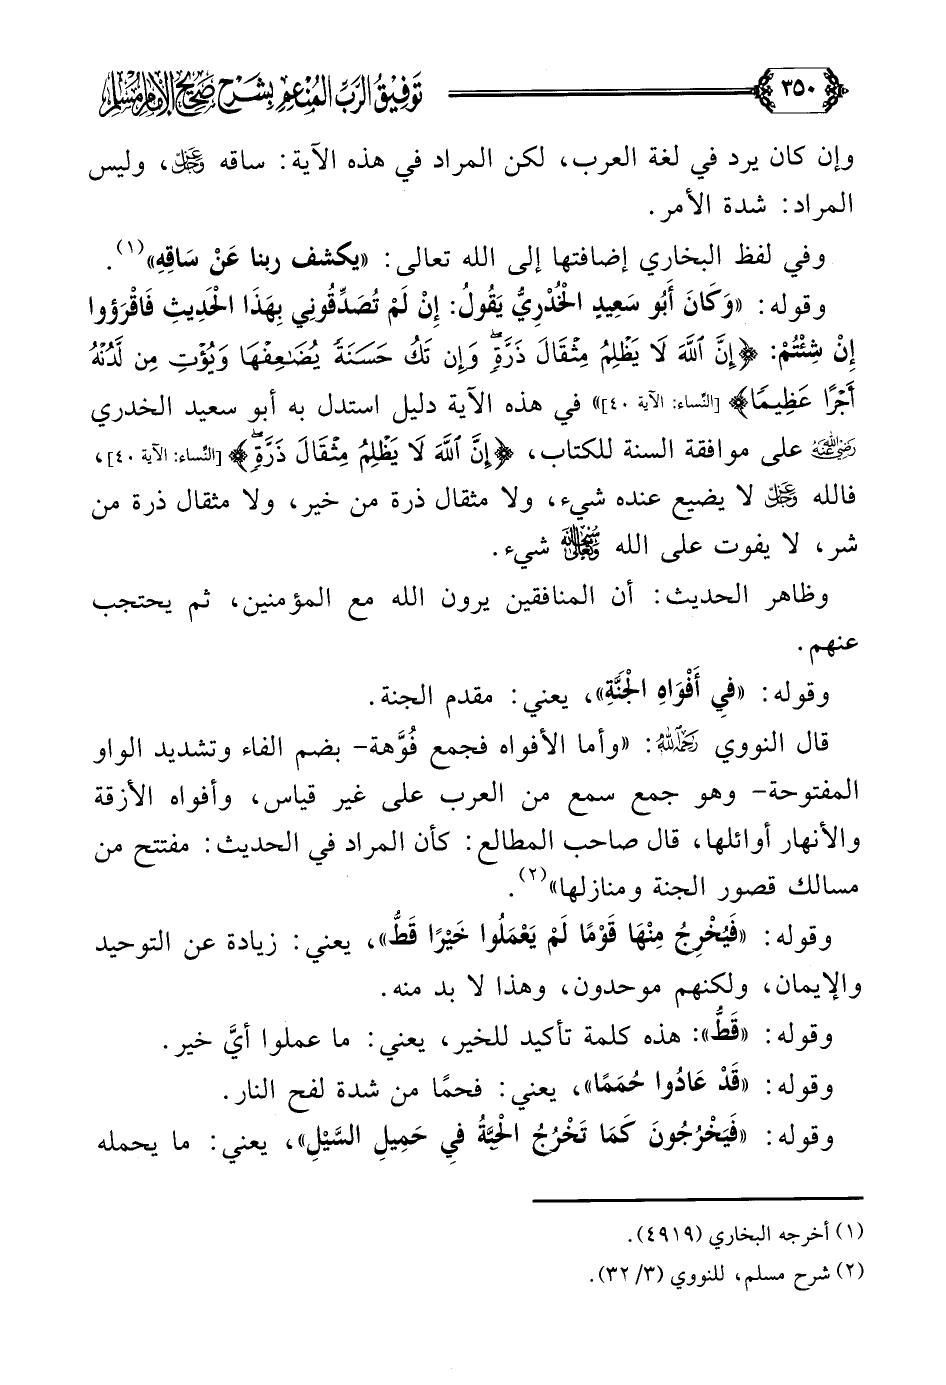 ٣٥٠ توفيق الرب المنعم بشرح صحيح الإمام مسلم
وإن كان يرد في لغة العرب، لكن المراد في هذه الآية: ساقه عز وجل، وليس
المراد: شدة الأمر.
وفي لفظ البخاري إضافتها إلى الله تعالى: «يكشف ربنا عَنْ سَاقِهِ»(١).
وقوله: «وَكَانَ أَبُو سَعِيدٍ الْخُدْرِيُّ يَقُولُ: إِنْ لَمْ تُصَدِّقُونِي بِهَذَا الْحَدِيثِ فَاقْرَؤُوا
إِنْ شِئْتُمْ: ﴿إِنَّ ٱللَّهَ لَا يَظْلِمُ مِثْقَالَ ذَرَّةٍۖ وَإِن تَكُ حَسَنَةً يُضَٰعِفْهَا وَيُؤْتِ مِن لَّدُنْهُ
أَجْرًا عَظِيمًا﴾ [النِّساء: الآية ٤٠]» في هذه الآية دليل استدل به أبو سعيد الخدري
رضي الله عنه على موافقة السنة للكتاب، ﴿إِنَّ ٱللَّهَ لَا يَظْلِمُ مِثْقَالَ ذَرَّةٍۖ﴾ [النِّساء: الآية ٤٠]،
فالله عز وجل لا يضيع عنده شيء، ولا مثقال ذرة من خير، ولا مثقال ذرة من
شر، لا يفوت على الله سبحانه وتعالى شيء.
وظاهر الحديث: أن المنافقين يرون الله مع المؤمنين، ثم يحتجب
عنهم.
وقوله: «فِي أَفْوَاهِ الْجَنَّةِ»، يعني: مقدم الجنة.
قال النووي رحمه الله: «وأما الأفواه فجمع فُوَّهة- بضم الفاء وتشديد الواو
المفتوحة- وهو جمع سمع من العرب على غير قياس، وأفواه الأزقة
والأنهار أوائلها، قال صاحب المطالع: كأن المراد في الحديث: مفتتح من
مسالك قصور الجنة ومنازلها»(٢).
وقوله: «فَيُخْرِجُ مِنْهَا قَوْمًا لَمْ يَعْمَلُوا خَيْرًا قَطُّ»، يعني: زيادة عن التوحيد
والإيمان، ولكنهم موحدون، وهذا لا بد منه.
وقوله: «قَطُّ»: هذه كلمة تأكيد للخير، يعني: ما عملوا أيَّ خير.
وقوله: «قَدْ عَادُوا حُمَمًا»، يعني: فحمًا من شدة لفح النار.
وقوله: «فَيَخْرُجُونَ كَمَا تَخْرُجُ الْحِبَّةُ فِي حَمِيلِ السَّيْلِ»، يعني: ما يحمله
(١) أخرجه البخاري (٤٩١٩).
(٢) شرح مسلم، للنووي (٣/ ٣٢).